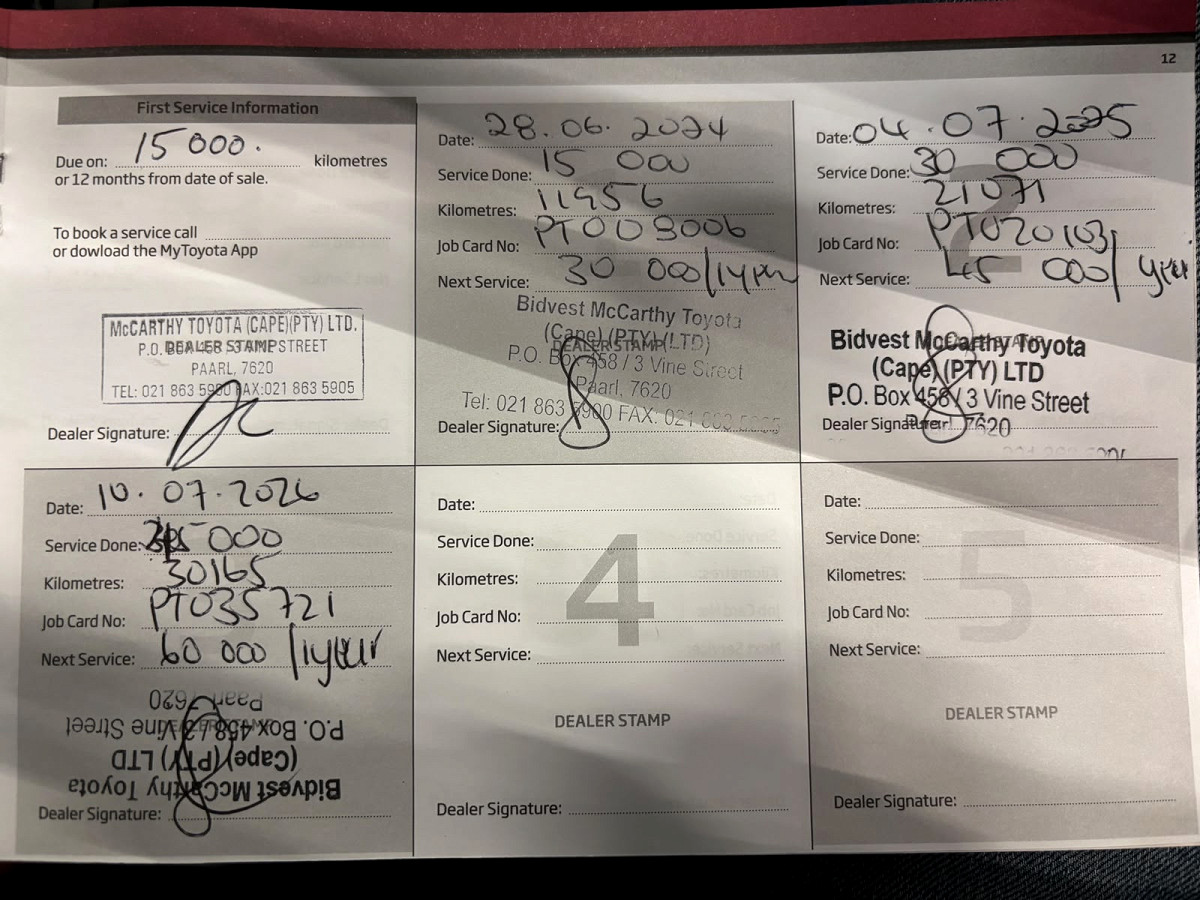 12
First Service Information
Due on: 15 000. kilometres
or 12 months from date of sale.
To book a service call
or dowload the MyToyota App
McCARTHY TOYOTA (CAPE)(PTY) LTD.
DEALER STAMP
P.O. BOX 458 / 3 VINE STREET
PAARL, 7620
TEL: 021 863 5900 FAX:021 863 5905
Dealer Signature:
Date: 28.06.2024
Service Done: 15 000
Kilometres: 11956
Job Card No: PT009006
Next Service: 30 000/1year
Bidvest McCarthy Toyota
(Cape) (PTY) (LTD)
DEALER STAMP
P.O. Box 458 / 3 Vine Street
Paarl, 7620
Tel: 021 863 5900 FAX: 021 863 5905
Dealer Signature:
2
Date: 04.07.2025
Service Done: 30 000
Kilometres: 21071
Job Card No: PT020103
Next Service: 45 000/ year
DEALER STAMP
Bidvest McCarthy Toyota
(Cape) (PTY) LTD
P.O. Box 458 / 3 Vine Street
Paarl 7620
Dealer Signature:
Date: 10.07.2026
Service Done: 45 000
Kilometres: 30165
Job Card No: PT035721
Next Service: 60 000 /1year
DEALER STAMP
Bidvest McCarthy Toyota
(Cape)(PTY) LTD
P.O. Box 458 / 3 Vine Street
Paarl 7620
Dealer Signature:
4
Date:
Service Done:
Kilometres:
Job Card No:
Next Service:
DEALER STAMP
Dealer Signature:
5
Date:
Service Done:
Kilometres:
Job Card No:
Next Service:
DEALER STAMP
Dealer Signature: